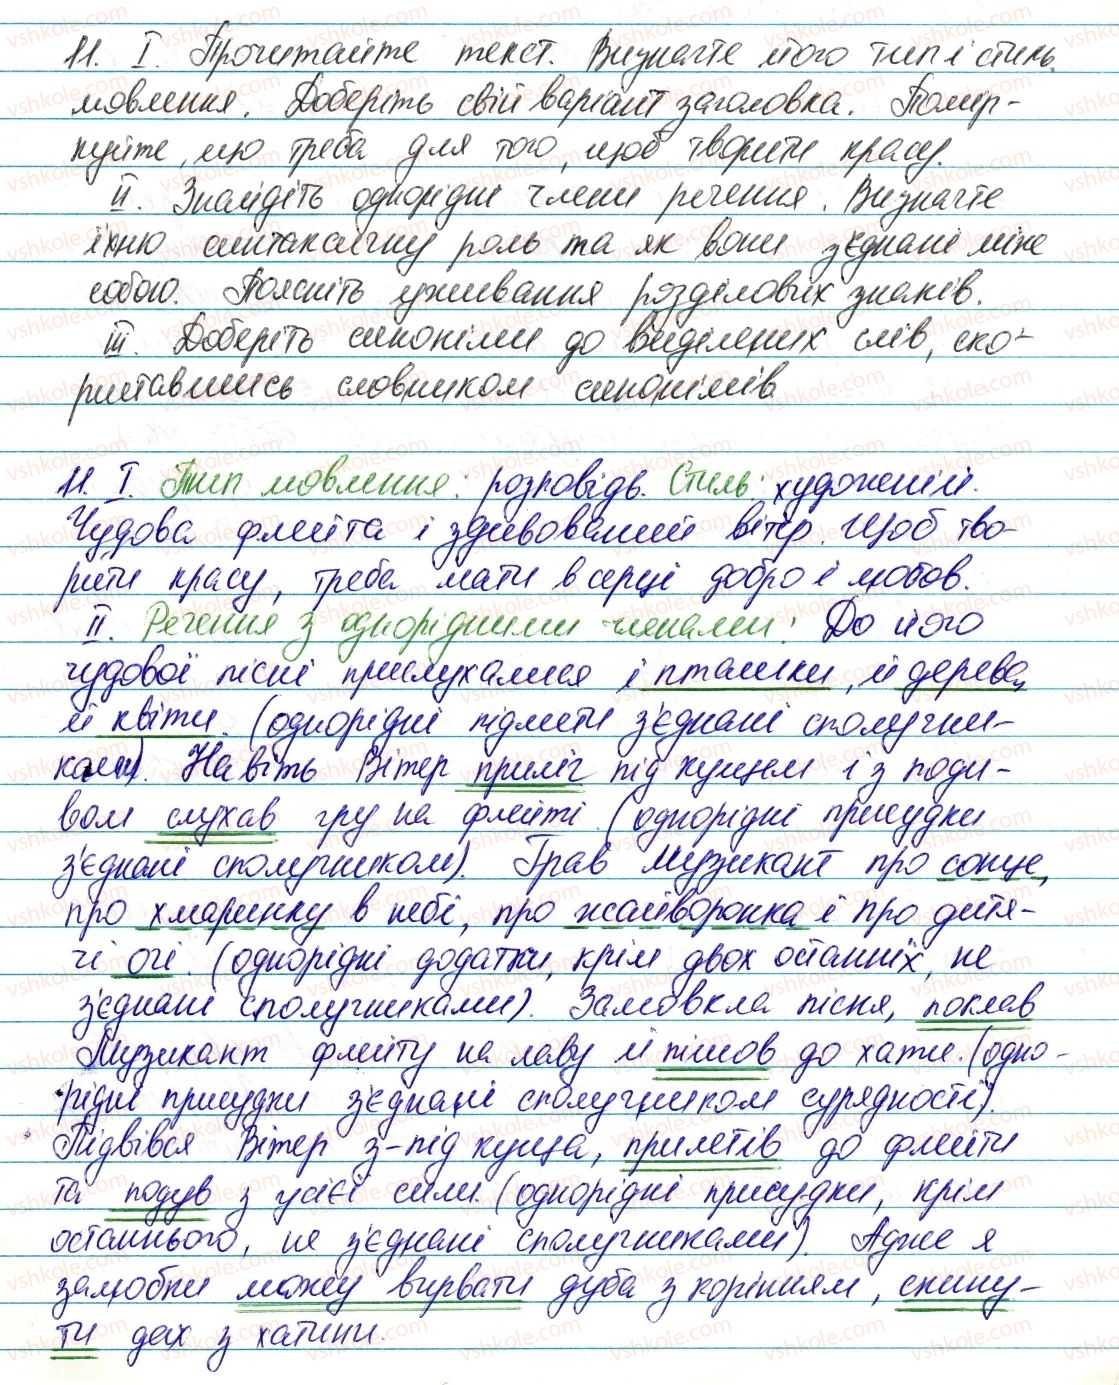 11. I. Прочитайте текст. Визначте його тип і стиль
мовлення. Доберіть свій варіант заголовка. Помір-
куйте, що треба для того, щоб творити красу.
II. Знайдіть однорідні члени речення. Визначте
їхню синтаксичну роль та як вони з'єднані між
собою. Поясніть уживання розділових знаків.
III. Доберіть синоніми до виділених слів, ско-
риставшись словником синонімів
11. I. Тип мовлення: розповідь. Стиль: художній.
Чудова флейта і здивований вітер. Щоб тво-
рити красу, треба мати в серці добро і любов.
II. Речення з однорідними членами: До його
чудової пісні прислухалися і пташки, й дерева,
й квіти. (однорідні підмети з'єднані сполучни-
ками). Навіть Вітер приліг під кущем і з поди-
вом слухав гру на флейті. (однорідні присудки
з'єднані сполучником). Грав Музикант про сонце,
про хмаринку в небі, про жайворонка і про дитя-
чі очі. (однорідні додатки, крім двох останніх, не
з'єднані сполучниками). Замовкла пісня, поклав
Музикант флейту на лаву й пішов до хати. (одно-
рідні присудки з'єднані сполучником сурядності).
Підвівся Вітер з-під куща, прилетів до флейти
та подув з усієї сили. (однорідні присудки, крім
останнього, не з'єднані сполучниками). Адже я
залюбки можу вирвати дуба з корінням, скину-
ти дах з хатини.